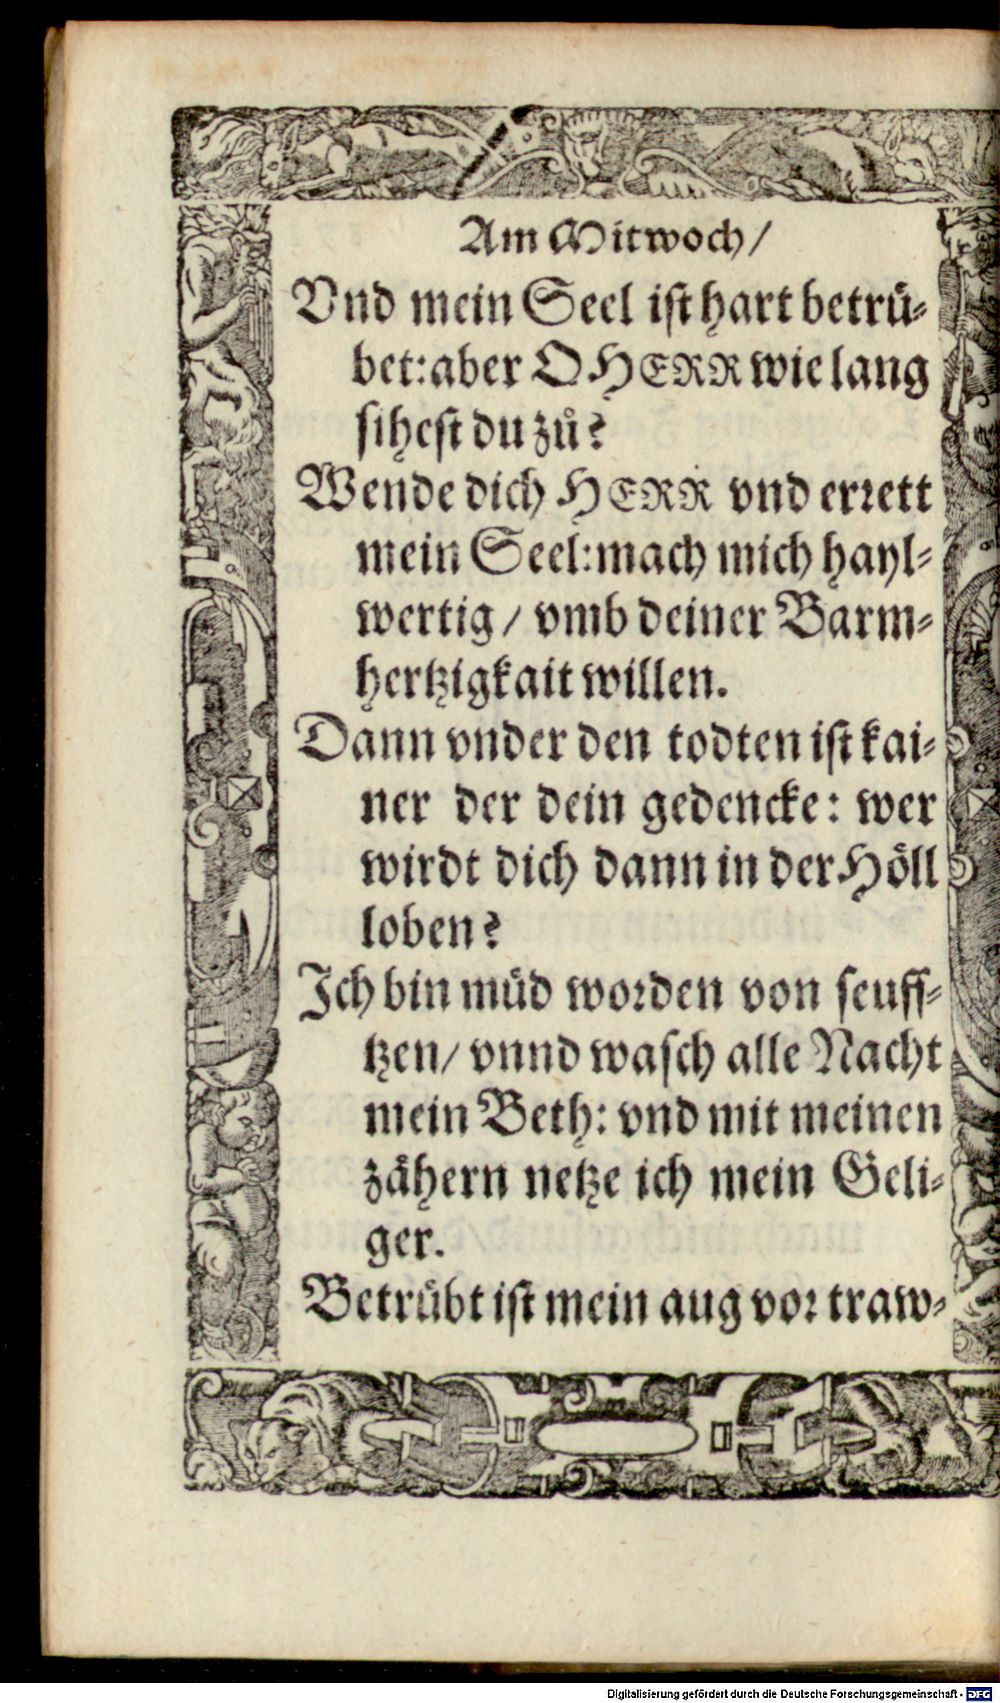 Am Mitwoch/
Vnd mein Seel ist hart betruͤ-
bet: aber O HERR wie lang
sihest du zuͦ?
Wende dich HERR vnd errett
mein Seel: mach mich hayl-
wertig / vmb deiner Barm-
hertzigkait willen.
Dann vnder den todten ist kai-
ner der dein gedencke: wer
wirdt dich dann in der Hoͤll
loben?
Ich bin muͤd worden von seuff-
tzen/ vnnd wasch alle Nacht
mein Beth: vnd mit meinen
zaͤhern netze ich mein Geli-
ger.
Betruͤbt ist mein aug vor traw-
Digitalisierung gefördert durch die Deutsche Forschungsgemeinschaft - DFG